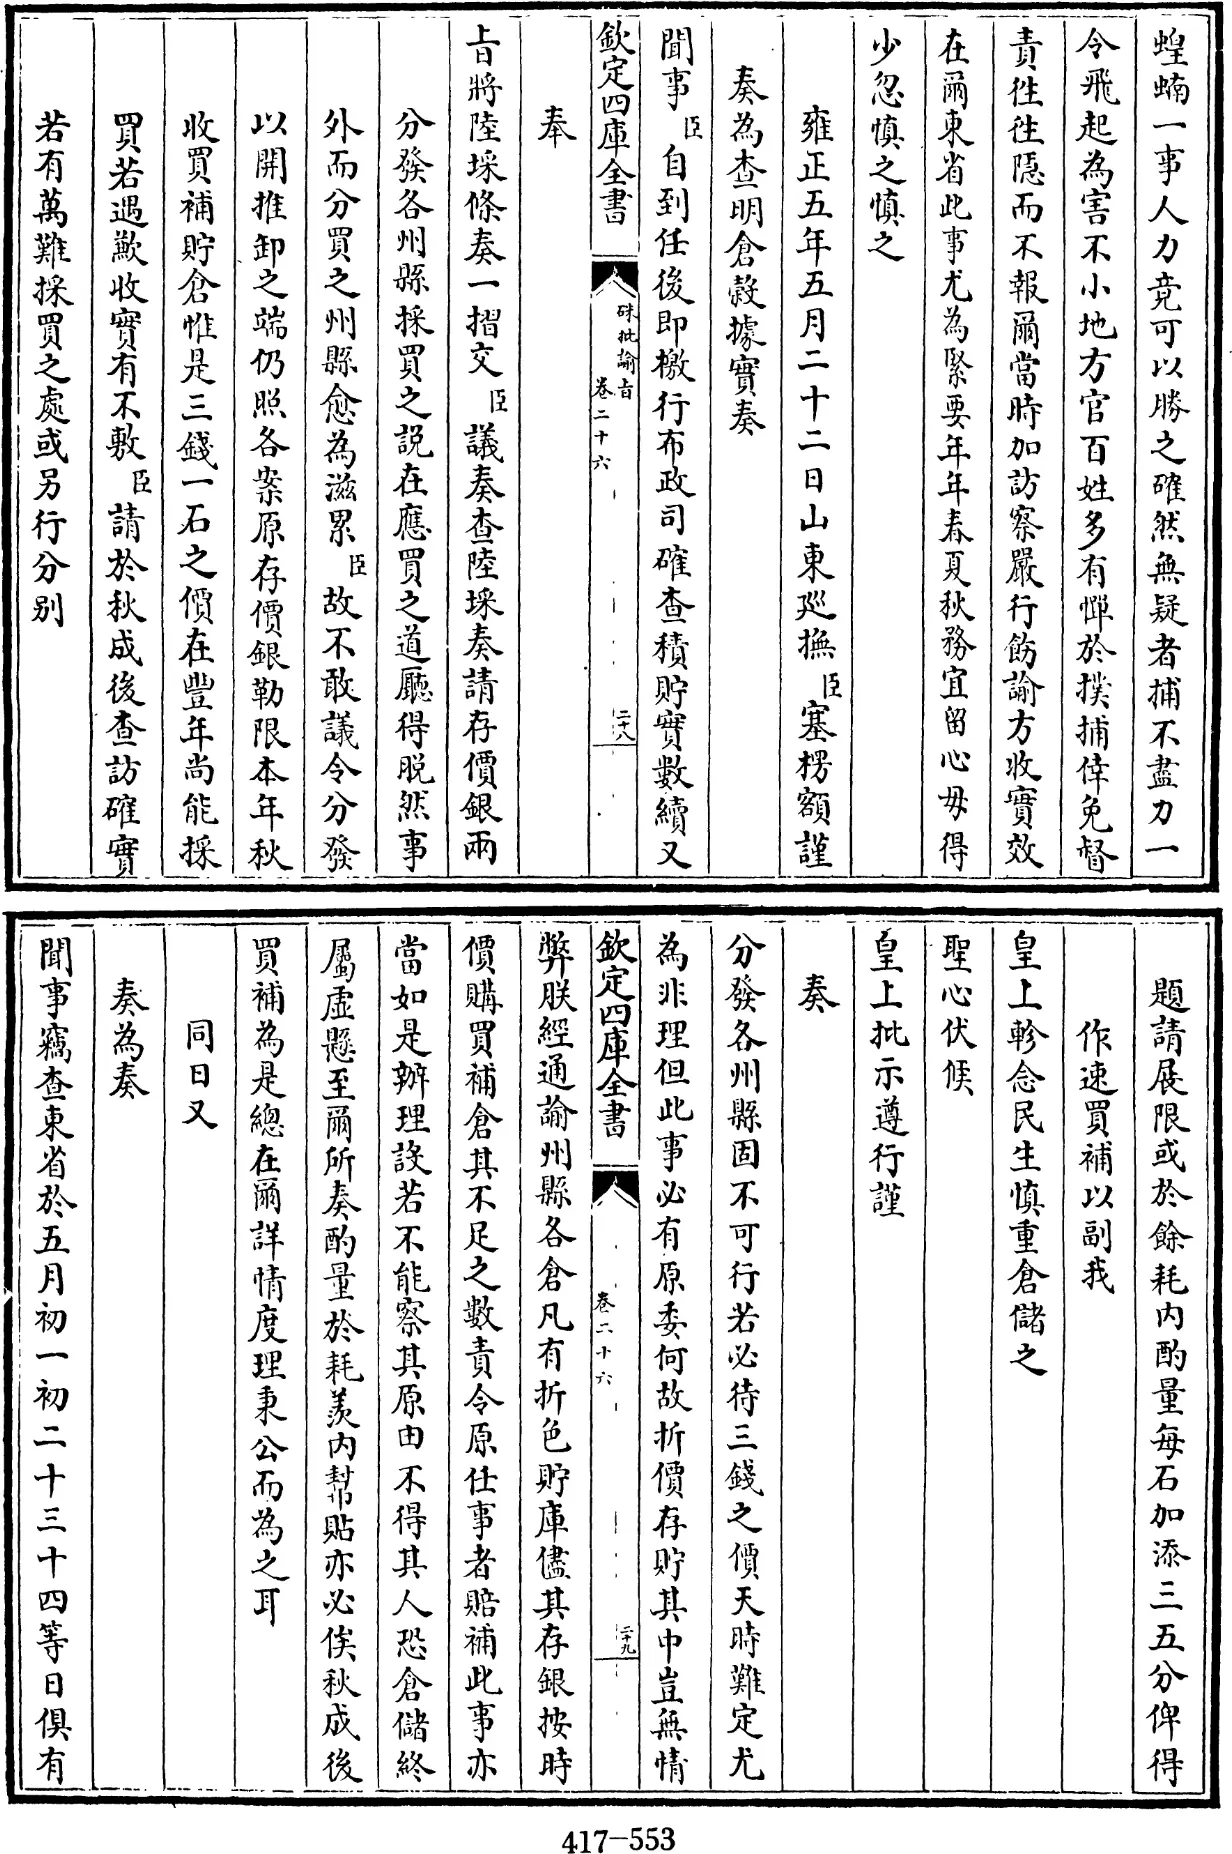 蝗蝻一事人力竟可以勝之確然無疑者捕不盡力一
令飛起為害不小地方官百姓多有憚於撲捕倖免督
責往往隱而不報爾當時加訪察嚴行飭諭方收實效
在爾東省此事尤為緊要年年春夏秋務宜留心毋得
少忽慎之慎之
雍正五年五月二十二日山東廵撫臣塞楞額謹
奏為查明倉穀據實奏
聞事臣自到任後即檄行布政司確查積貯實數續又
欽定四庫全書
硃批諭旨
卷二十六
二十八
奉
旨將陸採條奏一摺交臣議奏查陸採奏請存價銀兩
分發各州縣採買之説在應買之道廳得脱然事
外而分買之州縣愈為滋累臣故不敢議令分發
以開推卸之端仍照各案原存價銀勒限本年秋
收買補貯倉惟是三錢一石之價在豐年尚能採
買若遇歉收實有不敷臣請於秋成後查訪確實
若有萬難採買之處或另行分别
題請展限或於餘耗内酌量每石加添三五分俾得
作速買補以副我
皇上軫念民生慎重倉儲之
聖心伏候
皇上批示遵行謹
奏
分發各州縣固不可行若必待三錢之價天時難定尤
為非理但此事必有原委何故折價存貯其中豈無情
欽定四庫全書
卷二十六
二十九
弊朕經通諭州縣各倉凡有折色貯庫儘其存銀按時
價購買補倉其不足之數責令原任事者賠補此事亦
當如是辦理設若不能察其原由不得其人恐倉儲終
屬虛懸至爾所奏酌量於耗羨内幫貼亦必俟秋成後
買補為是總在爾詳情度理秉公而為之耳
同日又
奏為奏
聞事竊查東省於五月初一初二十三十四等日俱有
417-553